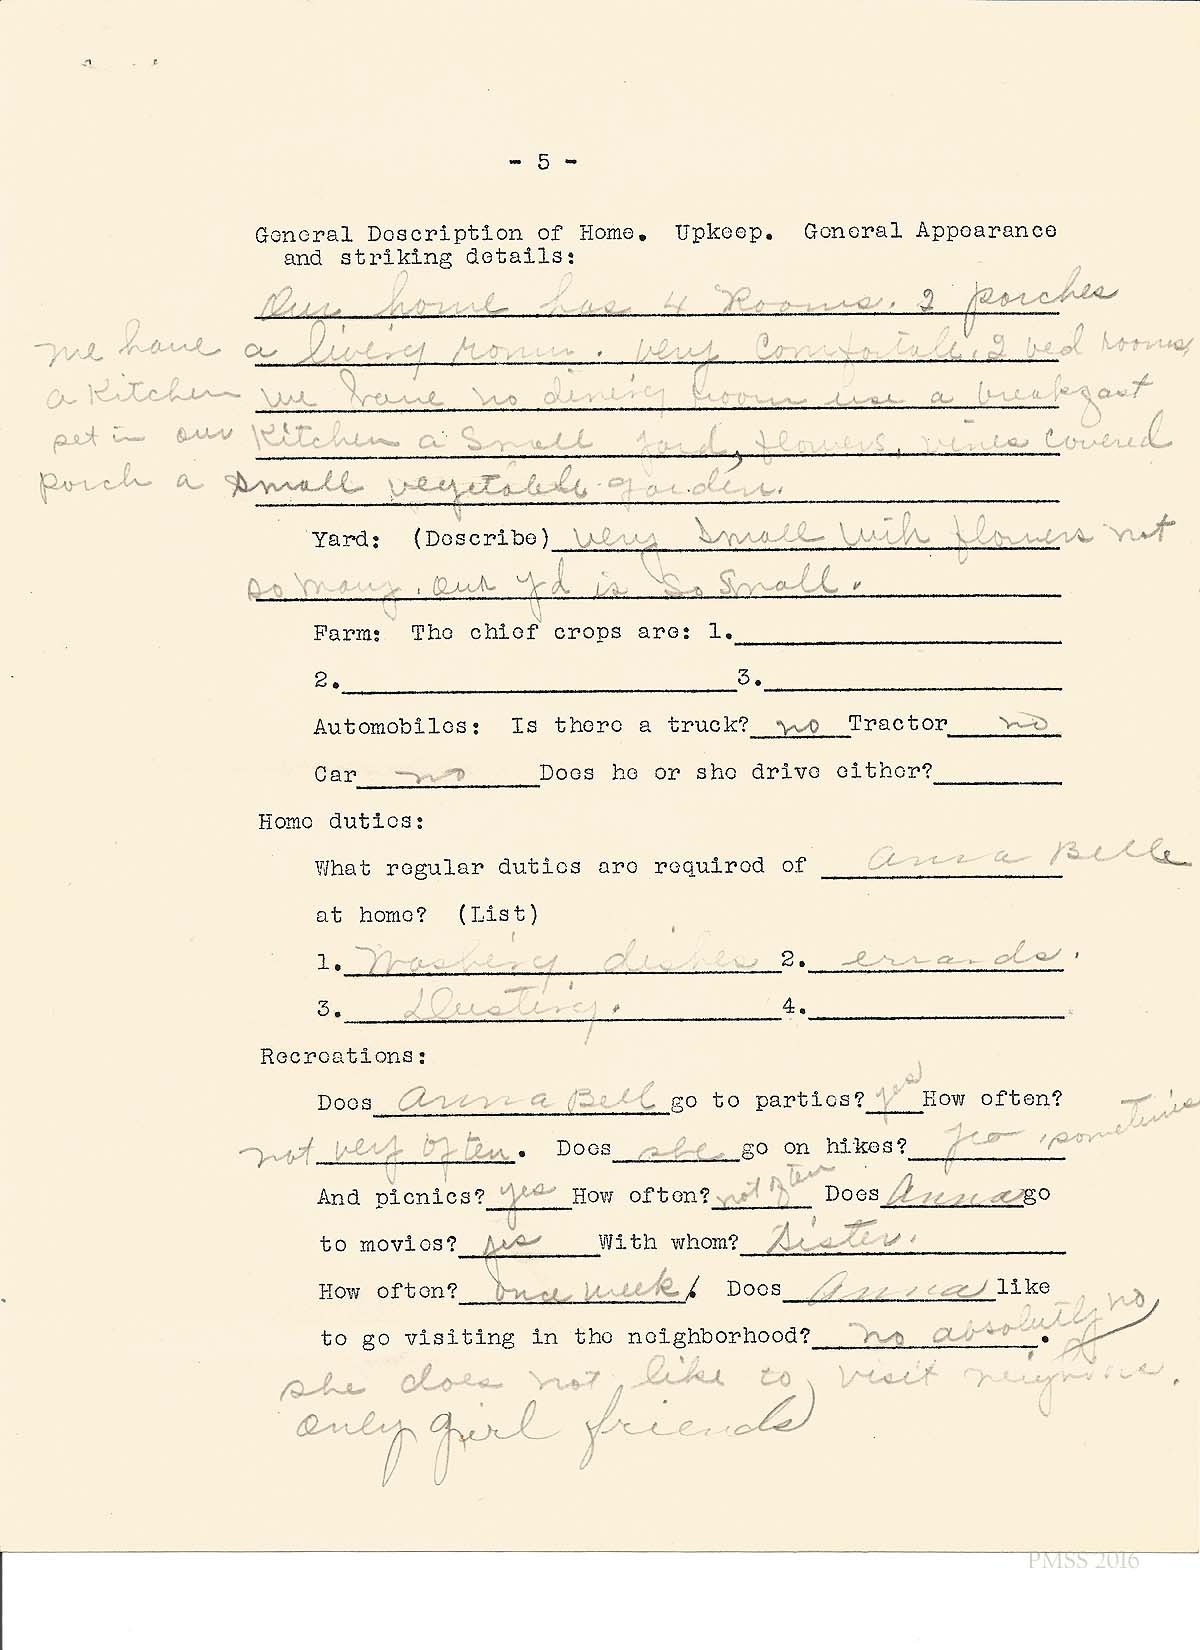 - 5 -
General Description of Home. Upkeep. General Appearance
and striking details:
Our home has 4 Rooms. 2 porches
we have a living room. very comfortable, 2 bed rooms,
a Kitchen we have no dining room use a breakfast
set in our Kitchen a Small yard, flowers, vines covered
porch a small vegetable garden.
Yard: (Describe) very small with flowers not
so many. our yd is so small.
Farm: The chief crops are: 1.
2. 3.
Automobiles: Is there a truck? no Tractor no
Car no Does he or she drive either?
Home duties:
What regular duties are required of Anna Belle
at home? (List)
1. Washing dishes 2. errands.
3. Dusting. 4.
Recreations:
Does Anna Bell go to parties? yes How often?
not very often. Does she go on hikes? yes, sometimes
And picnics? yes How often? not often Does Anna go
to movies? yes With whom? Sister.
How often? once week. Does Anna like
to go visiting in the neighborhood? no absolutly no.
she does not like to visit neighbors.
only girl friends
PMSS 2016